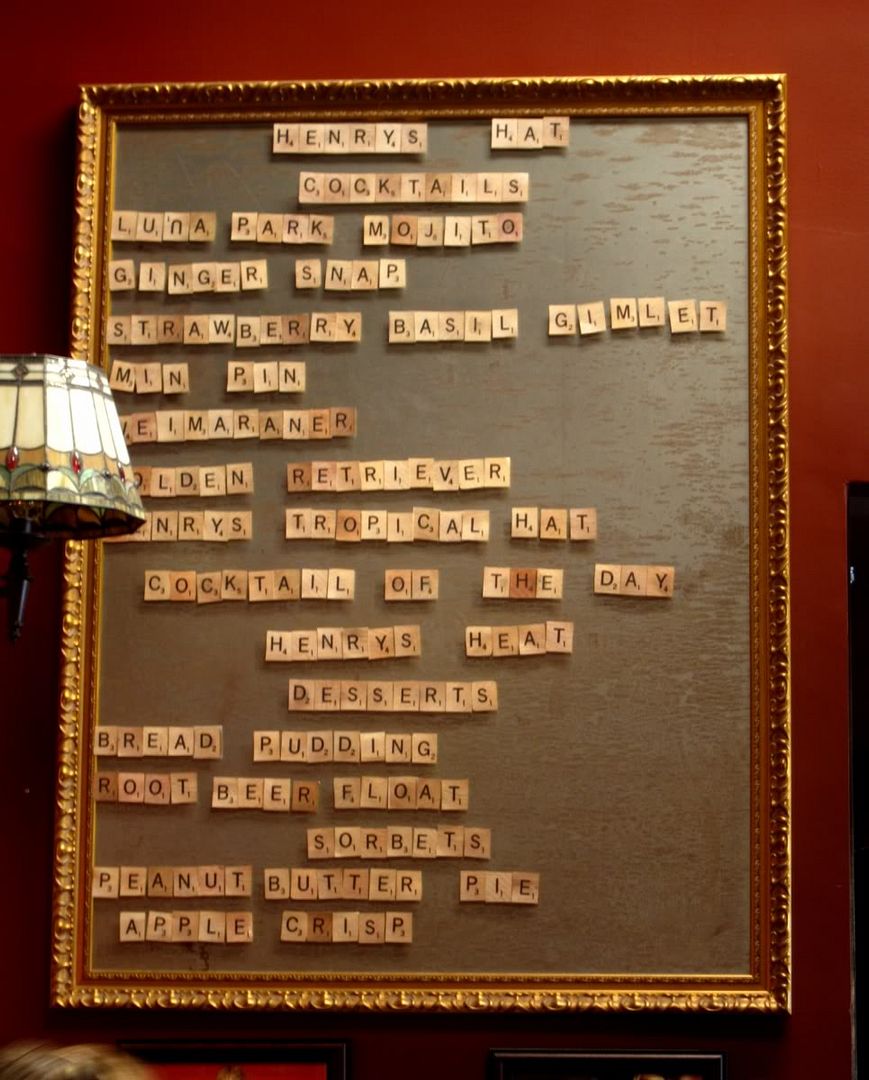 HENRYS HAT
COCKTAILS
LUNA PARK MOJITO
GINGER SNAP
STRAWBERRY BASIL GIMLET
MIN PIN
EIMARANER
OLDEN RETRIEVER
NRYS TROPICAL HAT
COCKTAIL OF THE DAY
HENRYS HEAT
DESSERTS
BREAD PUDDING
ROOT BEER FLOAT
SORBETS
PEANUT BUTTER PIE
APPLE CRISP